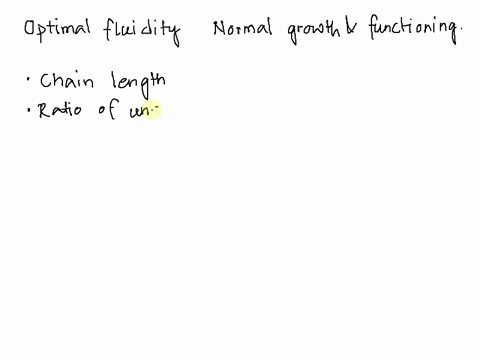 Optimal fluidity Normal growth & functioning.
· Chain length
· Ratio of un